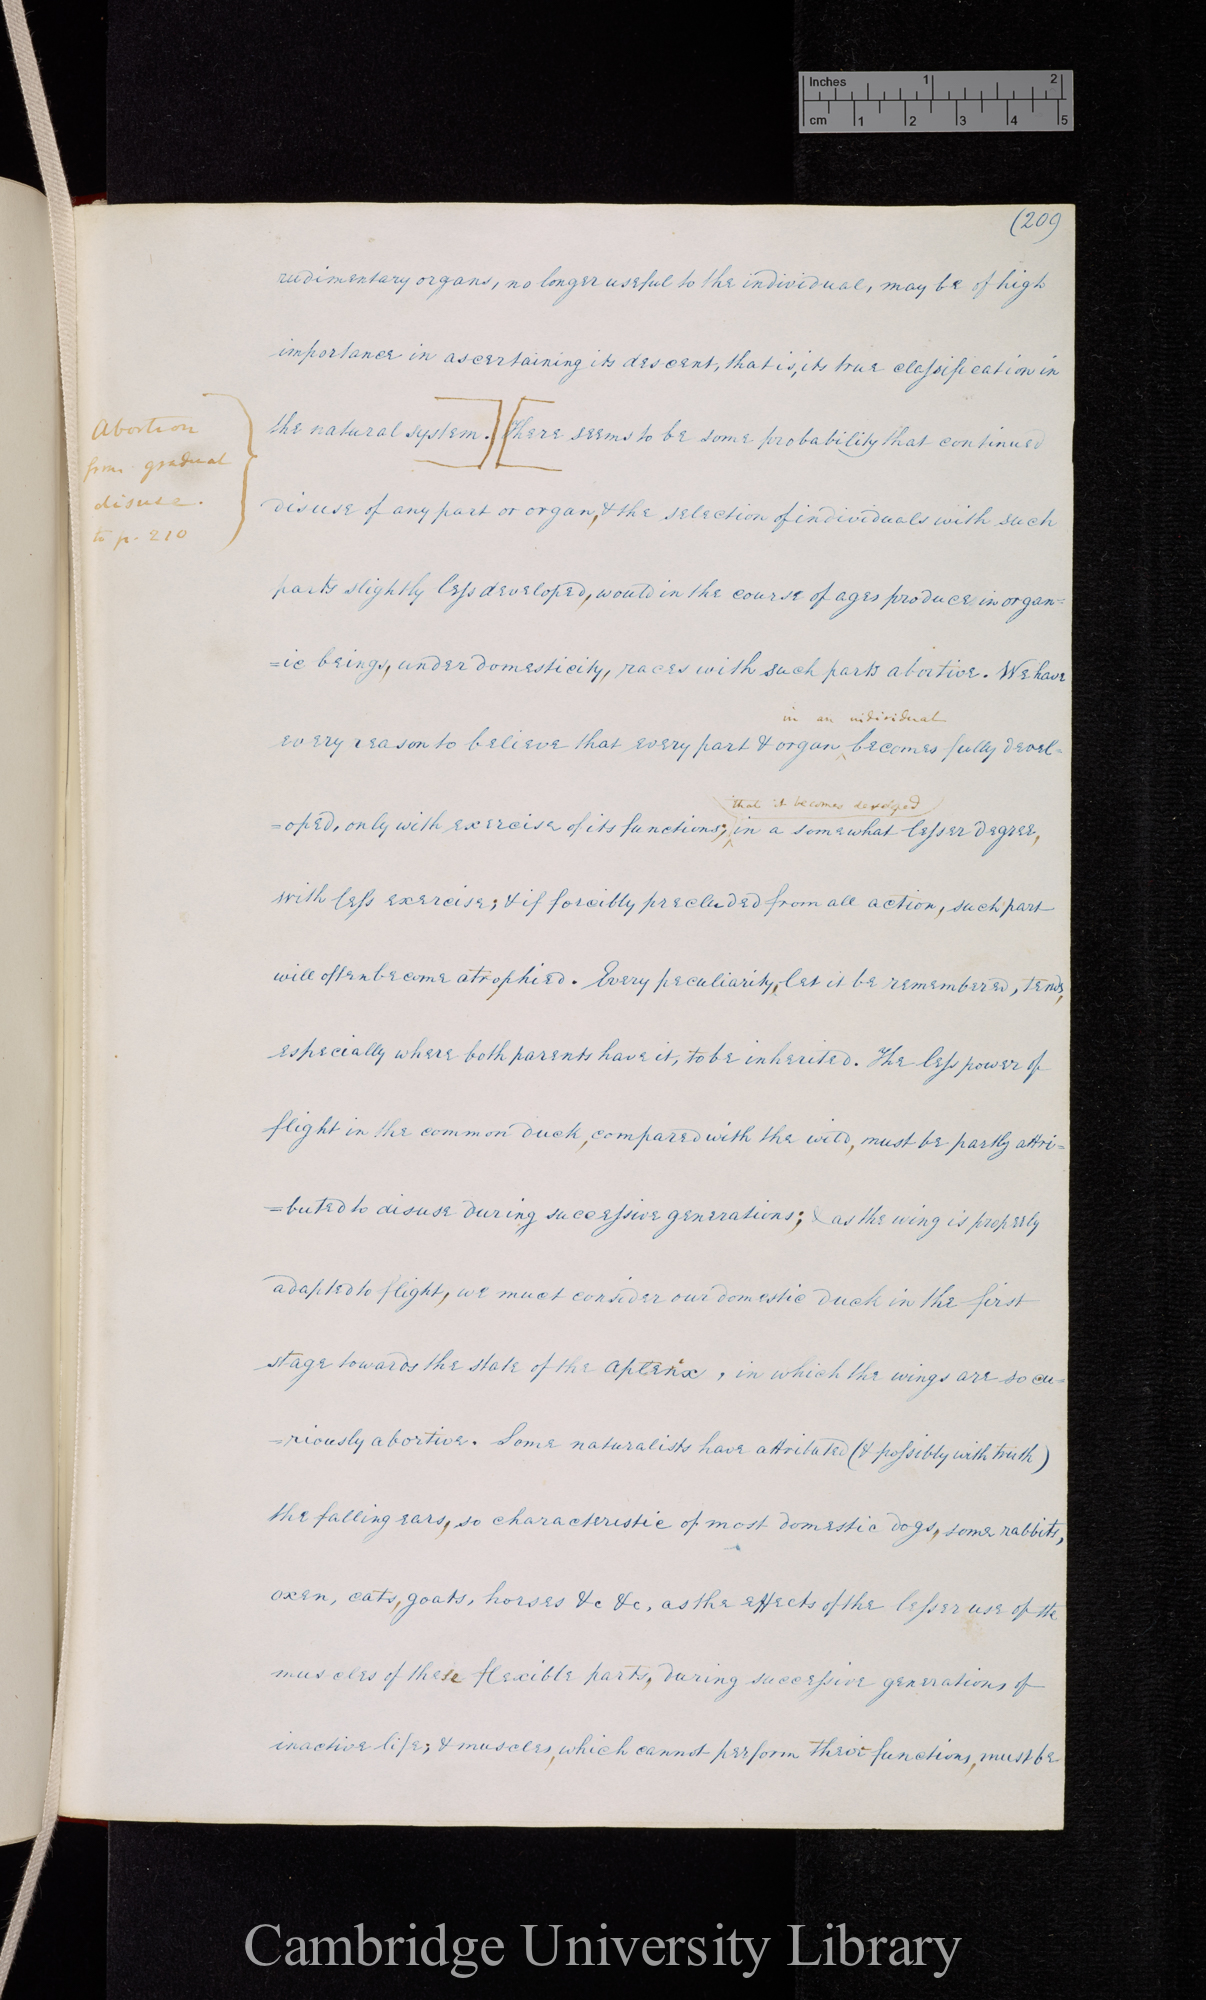 Inches 1 2
cm 1 2 3 4 5
(209
rudimentary organs, no longer useful to the individual, may be of high
importance in ascertaining its descent, that is, its true classification in
the natural system.] [There seems to be some probability that continued
Abortion
from gradual
disuse.
to p. 210
disuse of any part or organ, & the selection of individuals with such
parts slightly less developed, would in the course of ages produce in organ=
=ic beings, under domesticity, races with such parts abortive. We have
in an individual
every reason to believe that every part & organ becomes fully devel=
that it becomes developed
=oped, only with exercise of its functions; in a somewhat lesser degree,
with less exercise; & if forcibly precluded from all action, such part
will often become atrophied. Every peculiarity, let it be remembered, tends,
especially where both parents have it, to be inherited. The less power of
flight in the common duck, compared with the wild, must be partly attri=
=buted to disuse during successive generations; & as the wing is properly
adapted to flight, we must consider our domestic duck in the first
stage towards the state of the Apterix, in which the wings are so cu=
=riously abortive. Some naturalists have attributed (& possibly with truth)
the falling ears, so characteristic of most domestic dogs, some rabbits,
oxen, cats, goats, horses &c &c, as the effects of the lesser use of the
muscles of these flexible parts, during successive generations of
inactive life; & muscles, which cannot perform their functions, must be
Cambridge University Library